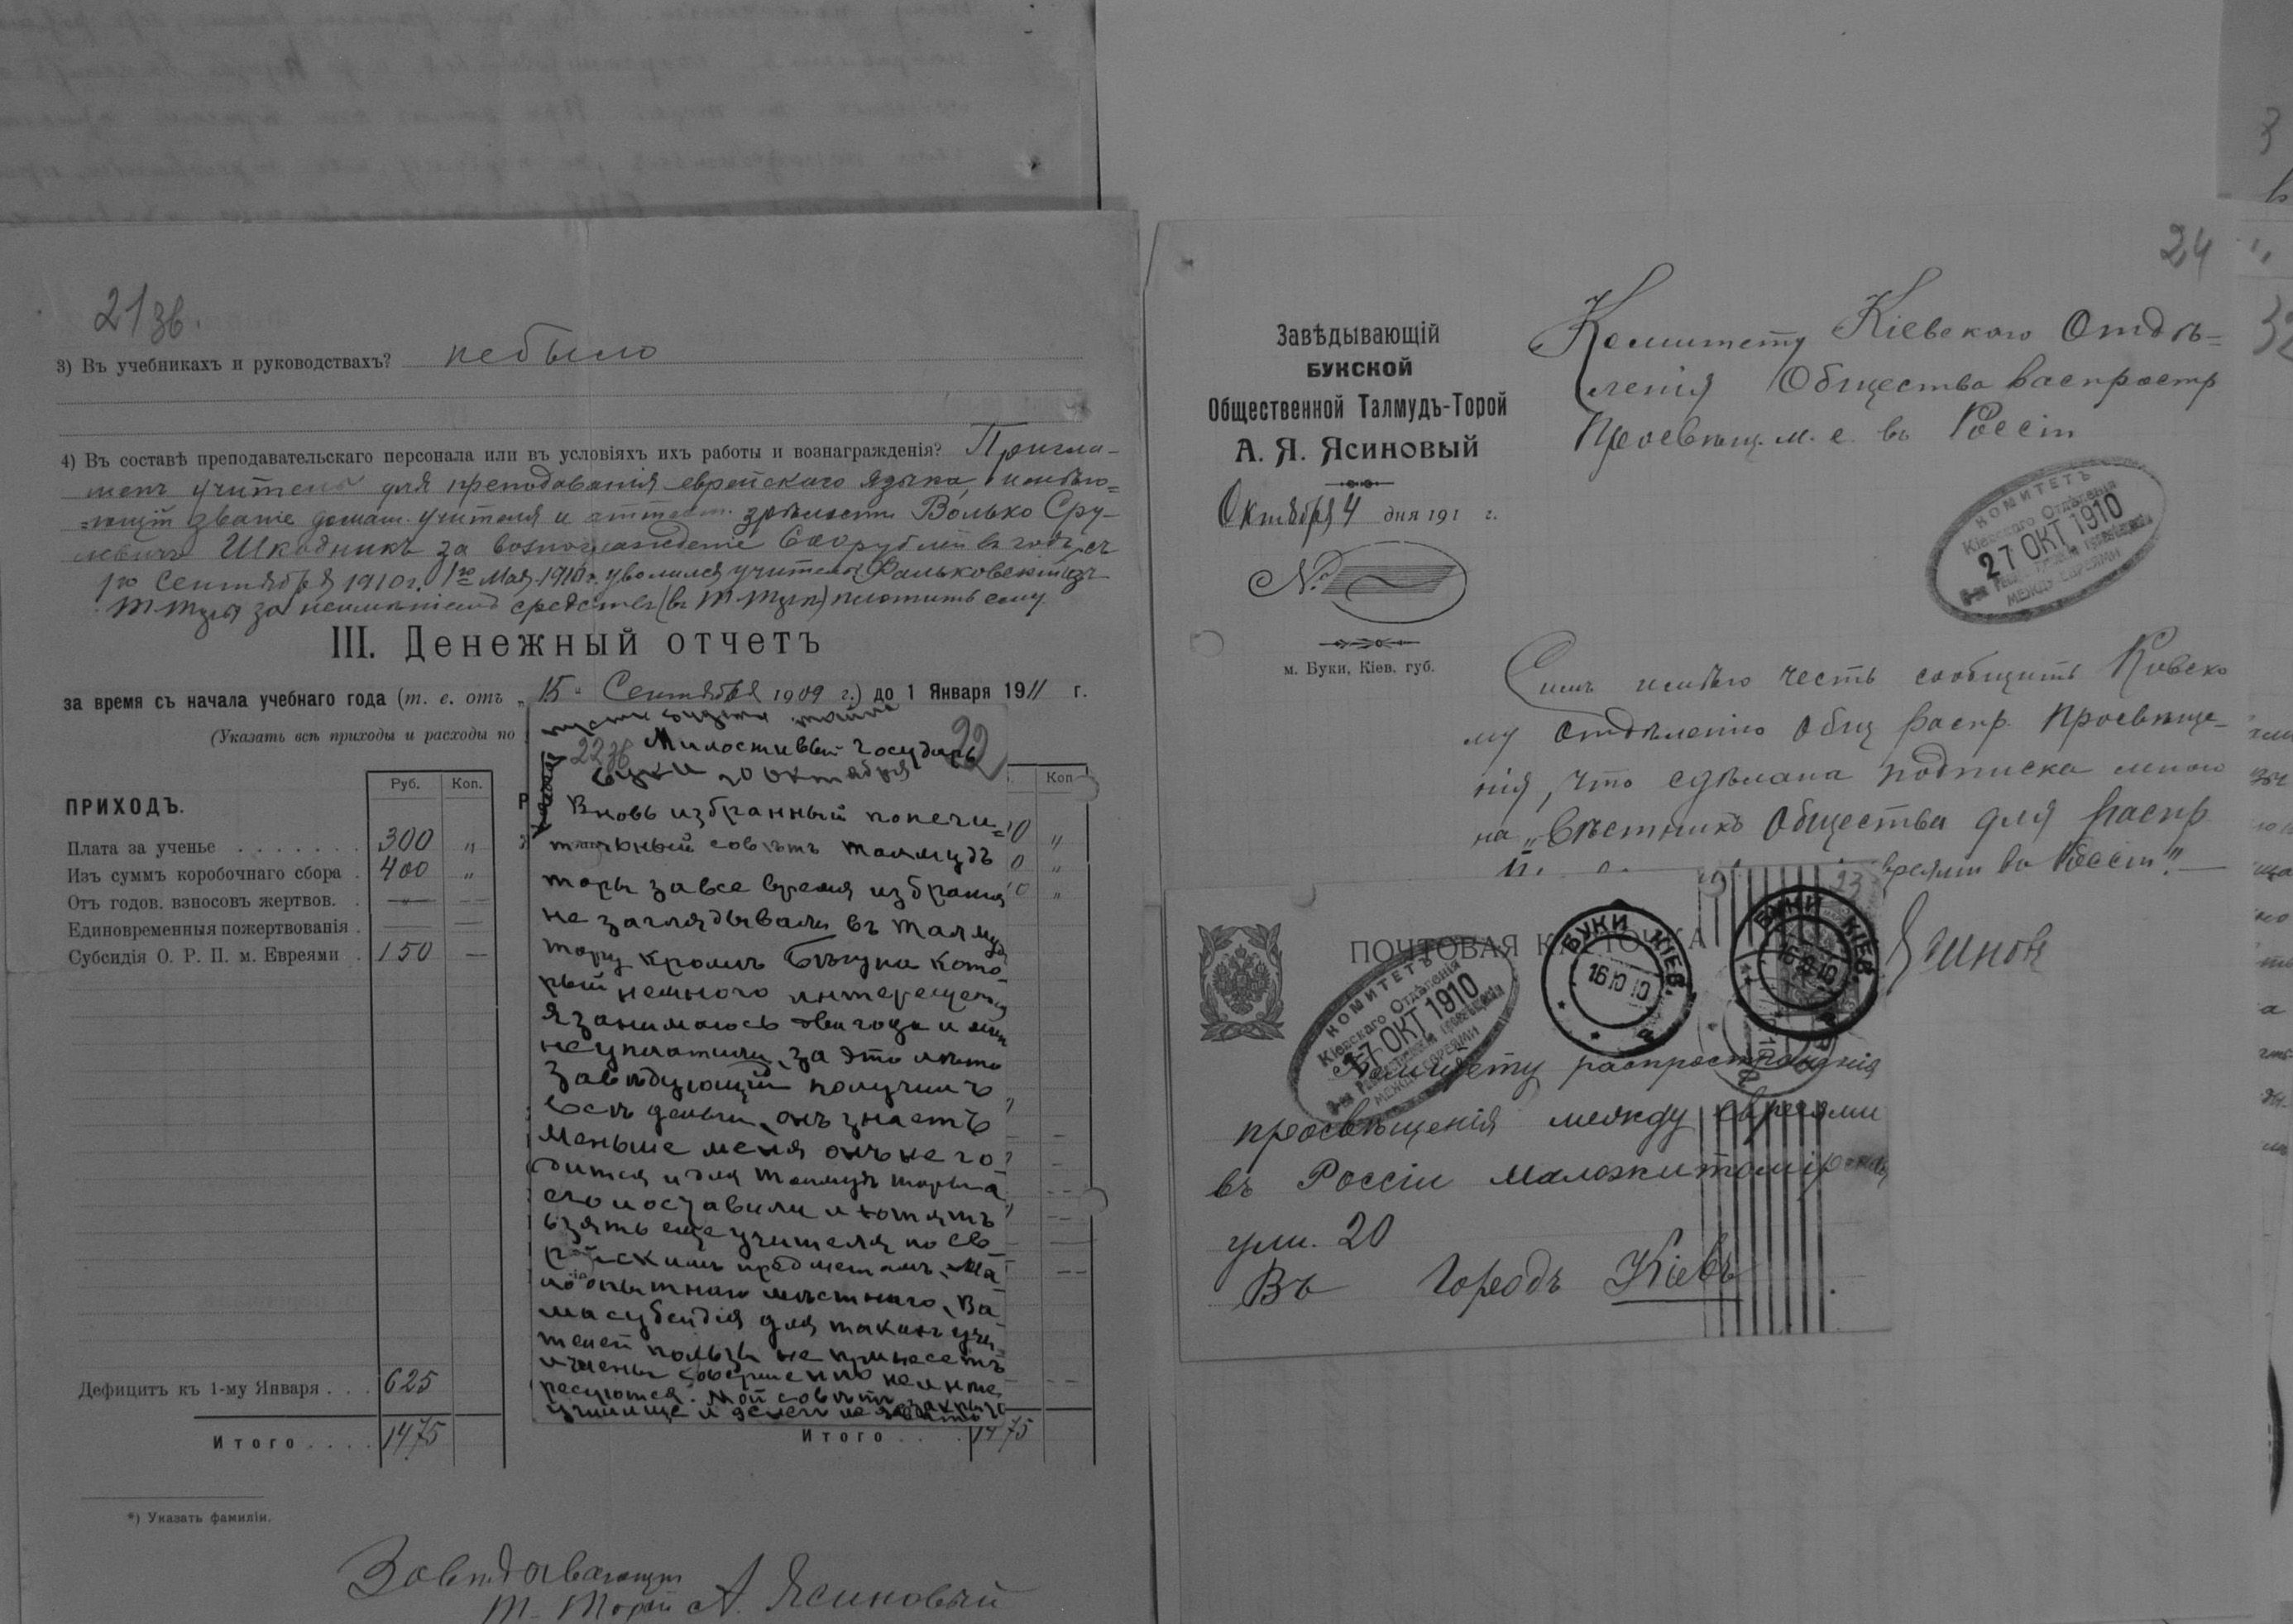 21 зв.
3) Въ учебникахъ и руководствахъ? небыло
4) Въ составѣ преподавательскаго персонала или въ условіяхъ ихъ работы и вознагражденія? Пригла-
шенъ учитель для преподаванія еврейскаго языка, имѣю=
=ющій званіе домаш. учителя и аттест. зрѣлости Волько Сру-
левичъ Школникъ за вознагражденіе 600 рублей въ годъ, съ
1го Сентября 1910 г. 1го Мая 1910 г. уволился учитель Фальковскій изъ
Т-Торы за неимѣніемъ средствъ (въ Т-Торѣ) платить ему.
III. Денежный отчетъ
за время съ начала учебнаго года (т. е. отъ „15" Сентября 1909 г.) до 1 Января 1911 г.
(Указать всѣ приходы и расходы по
Руб. Коп.
ПРИХОДЪ.
Плата за ученье 300 "
Изъ суммъ коробочнаго сбора 400 "
Отъ годов. взносовъ жертвов.
Единовременныя пожертвованія
Субсидія О. Р. П. м. Евреями 150 —
Дефицитъ къ 1-му Января 625
Итого 1475
Коп
Итого 1475
*) Указать фамиліи.
Завѣдывающій
Т-Торой А. Ясиновый
22 зв
22
пусть будетъ тайна
Милостивый Государь
Буки 10 октября
Вновь избранный попечи=
тельный совѣтъ талмудъ
торы за все время избрания
не заглядывали въ талмуд
тору кромѣ Бѣгуна кото
рый немного интересуется
Я занимаюсь два года и мнѣ
не уплатили за это лѣто
Завѣдующій получилъ
всѣ деньги, онъ знаетъ
меньше меня онъ не го
дится и для талмудъ торы а
его и оставили и хотятъ
взять еще учителя по ев
рейскимъ предметамъ, ма
лоопытнаго мѣстнаго, Ва
ша субсидія для такихъ учи
телей пользы не принесетъ
и члены совершенно не инте
ресуются. Мой совѣтъ закрыть
училище и денег не давать
24
Завѣдывающій
БУКСКОЙ
Общественной Талмудъ-Торой
А. Я. Ясиновый
Октября 4 дня 191 г.
№
м. Буки, Кіев. губ.
Комитету Кіевскаго Отдѣ=
ленія Общества распростр
Просвѣщ. м. е. въ Россіи
КОМИТЕТЪ
Кіевскаго Отдѣленія
27 ОКТ 1910
МЕЖДУ ЕВРЕЯМИ
Симъ имѣю честь сообщить Кіевско
му отдѣленію Общ распр. Просвѣще-
нія, что сдѣлана подписка мною
на „Вѣстникъ Общества для распр
евреями въ Россіи".
Ясинов
23
ПОЧТОВАЯ КАРТОЧКА
БУКИ КІЕВ.
16 10 10
БУКИ КІЕВ.
16 10 10
КОМИТЕТЪ
Кіевскаго Отдѣленія
17 ОКТ 1910
МЕЖДУ ЕВРЕЯМИ
Комитету распространенія
просвѣщенія между евреями
въ Россіи Маложитомірская
ули. 20
Въ Городъ Кіевъ